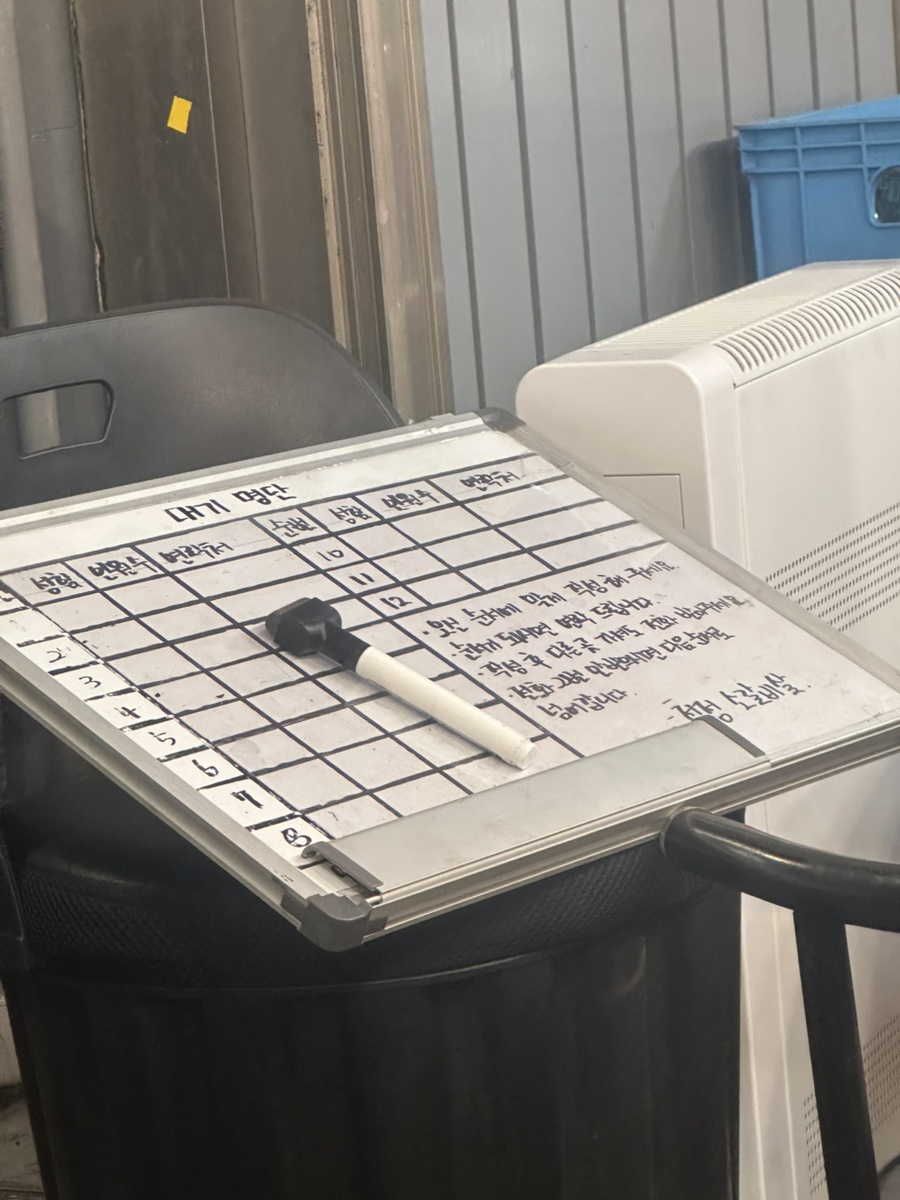 대기 명단
성함 인원수 연락처 순번 성함 인원수 연락처
1
2
3
4
5
6
7
8
10
11
12
· 오신 순서에 맞게 작성해 주세요.
순서 되시면 연락 드립니다.
· 작성 후 다른 곳 가셔도
전화 그냥 안 받으시면 다음 순서로
넘어갑니다.